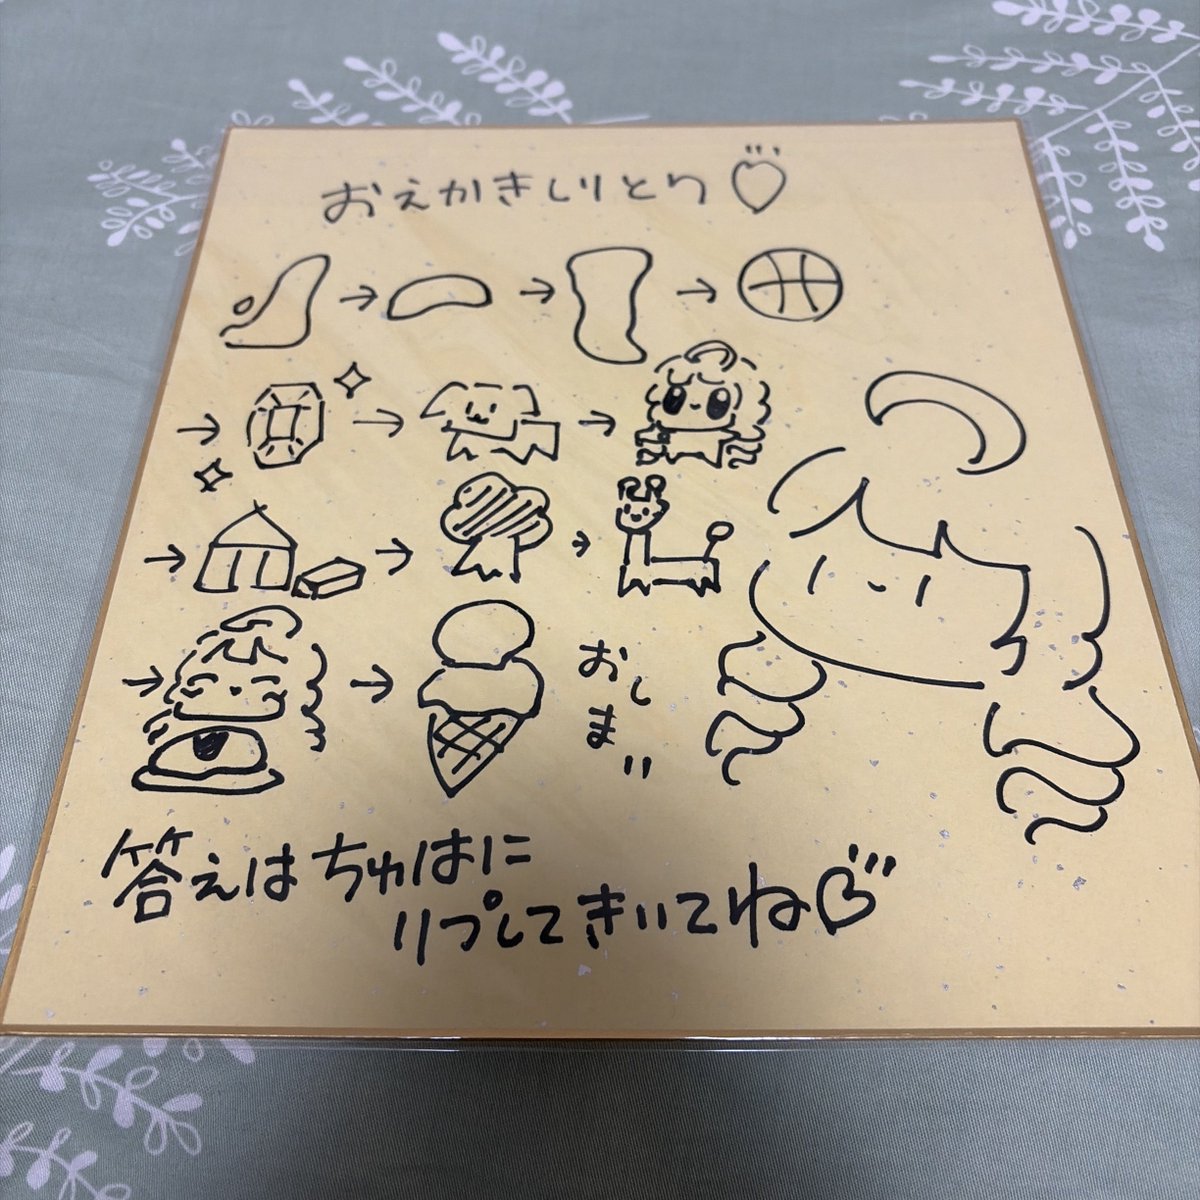 おえかきしりとり
おしまい
答えはちゅはに
リプしてきいてね